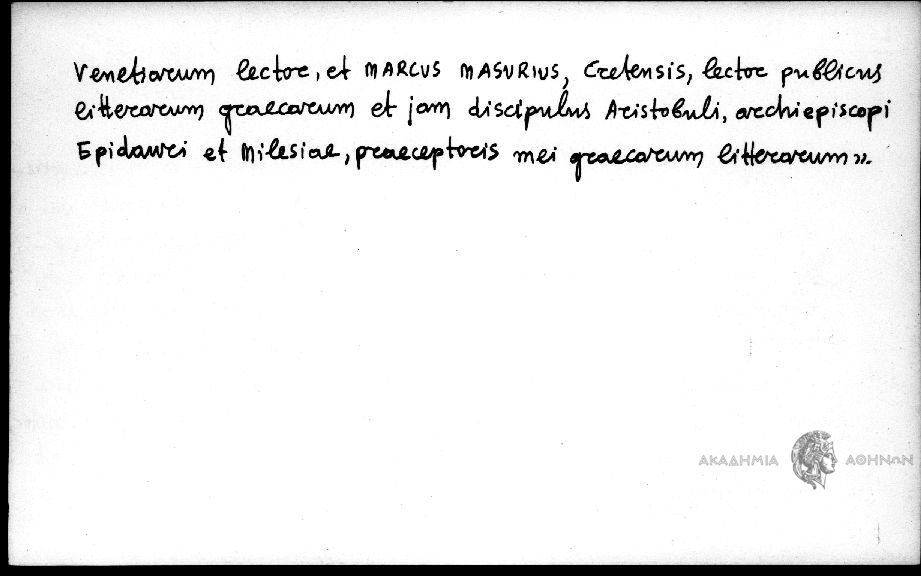 Venetiarum lector, et MARCUS MASURIUS, Cretensis, lector publicus
litterarum graecarum et jam discipulus Aristobuli, archiepiscopi
Epidauri et Milesiae, praeceptoris mei graecarum litterarum».
ΑΚΑΔΗΜΙΑ ΑΘΗΝΩΝ